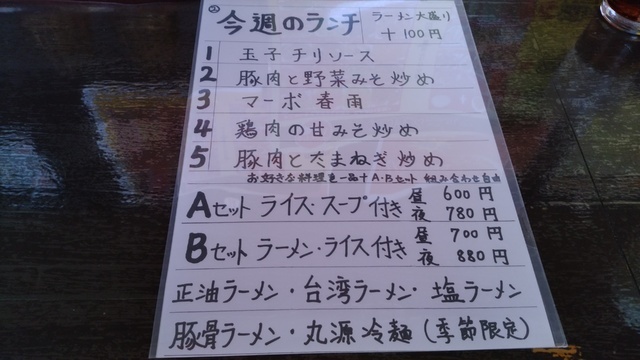 ② 今週のランチ
ラーメン大盛り
+100円
1 玉子チリソース
2 豚肉と野菜みそ炒め
3 マーボ春雨
4 鶏肉の甘みそ炒め
5 豚肉と太まねぎ炒め
お好きな料理を一品+A・Bセット組み合わせ自由
Aセット ライス・スープ付き 昼 600円
夜 780円
Bセット ラーメン・ライス付き 昼 700円
夜 880円
正油ラーメン・台湾ラーメン・塩ラーメン
豚骨ラーメン・丸源冷麺(季節限定)